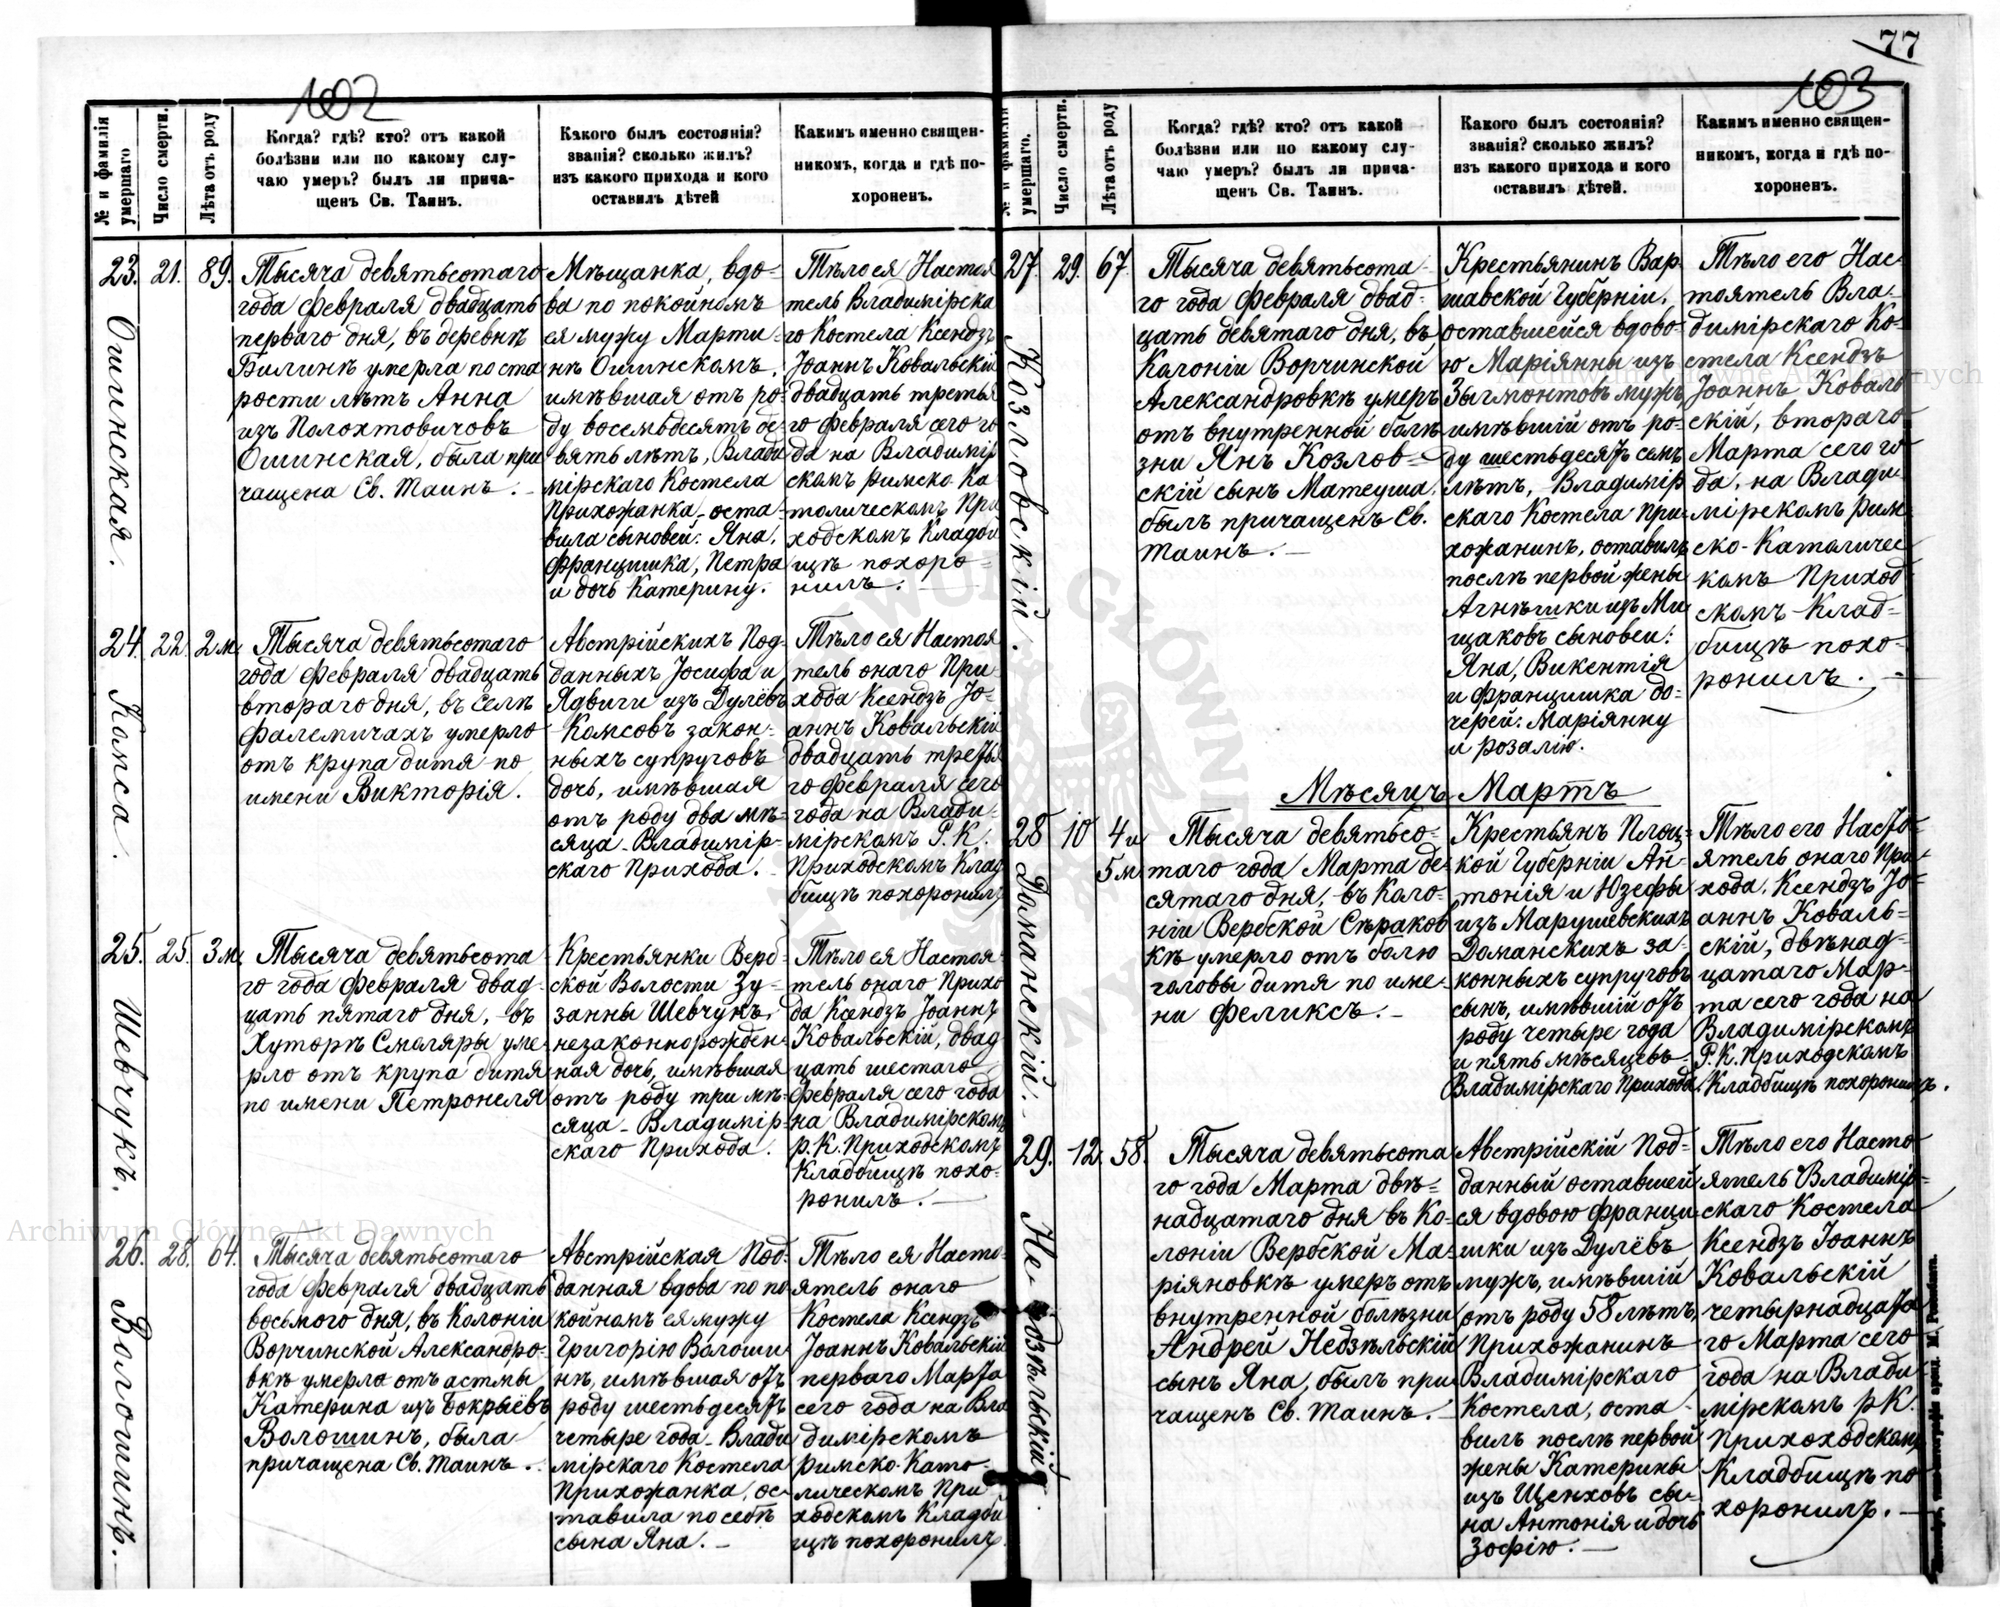 77
102
103
№ и фамилія умершаго.
Число смерти.
Лѣта отъ роду
Когда? гдѣ? кто? отъ какой
болѣзни или по какому слу-
чаю умеръ? былъ ли прича-
щенъ Св. Таинъ.
Какого былъ состоянія?
званія? сколько жилъ?
изъ какого прихода и кого
оставилъ дѣтей
Какимъ именно священ-
никомъ, когда и гдѣ по-
хороненъ.
23.
Ошинская.
21.
89.
Тысяча девятьсотаго
года февраля двадцать
перваго дня, въ деревнѣ
Билинѣ умерла по ста
рости лѣтъ Анна
изъ Полохтовичовъ
Ошинская, была при
чащена Св. Таинъ.
Мѣщанка, вдо-
ва по покойномъ
ея мужу Марти-
нѣ Ошинскомъ,
имѣвшая отъ ро-
ду восемьдесятъ де-
вять лѣтъ, Влади
мірскаго Костела
прихожанка, оста-
вила сыновей: Яна,
Францишка, Петра
и дочь Катерину.
Тѣло ея Настоя
тель Владимірска
го Костела Ксендзъ
Іоаннъ Ковальскій
двадцать третья
го февраля сего го
да на Владимір
скомъ римско-Ка
толическомъ При
ходскомъ Кладби
щѣ похоро-
нилъ.
24.
Копса.
22.
2 м.
Тысяча девятьсотаго
года февраля двадцать
втораго дня, въ селѣ
Фалемичахъ умерло
отъ крупа дитя по
имени Викторія.
Австрійскихъ Под-
данныхъ Іосифа и
Ядвиги изъ Дулёвъ
Комсовъ закон-
ныхъ супруговъ
дочь, имѣвшая
отъ роду два мѣ-
сяца - Владимір-
скаго Прихода.
Тѣло ея Настоя
тель онаго При-
хода Ксендзъ Іо-
аннъ Ковальскій
двадцать третья
го февраля сего
года на Влади-
мірскомъ Р. К.
Приходскомъ Клад
бищѣ похоронилъ
25.
Шевчукъ.
25.
3 м.
Тысяча девятьсота
го года февраля двад-
цать пятаго дня, въ
Хуторѣ Смоляры уме-
рло отъ крупа дитя
по имени Петронеля
Крестьянки Верб-
ской Волости Зу-
занны Шевчукъ,
незаконнорожден-
ная дочь, имѣвшая
отъ роду три мѣ-
сяца - Владимір-
скаго Прихода.
Тѣло ея Настоя-
тель онаго Прихо
да Ксендзъ Іоаннъ
Ковальскій, двад
цать шестаго
февраля сего года
на Владимірскомъ
р. К. Приходскомъ
Кладбищѣ похо-
ронилъ.
26.
Волошинъ.
28.
64.
Тысяча девятьсотаго
года февраля двадцать
восьмого дня, въ Колоніи
Ворчинской Александро-
вкѣ умерла отъ астмы
Катерина изъ Бокрыёвъ
Волошинъ, была
причащена Св. Таинъ.
Австрійская Под-
данная вдова по по
койномъ ея мужу
Григорію Волоши
нѣ, имѣвшая отъ
роду шестьдесятъ
четыре года - Влади
мірскаго Костела
Прихожанка, ос-
тавила по себѣ
сына Яна.
Тѣло ея Насто-
ятель онаго
Костела Ксендзъ
Іоаннъ Ковальскій
перваго Марта
сего года на Вла
димірскомъ
римско-Като-
лическомъ При
ходскомъ Кладби
щѣ похоронилъ.
№ и фамилія умершаго.
Число смерти.
Лѣта отъ роду
Когда? гдѣ? кто? отъ какой
болѣзни или по какому слу-
чаю умеръ? былъ ли прича-
щенъ Св. Таинъ.
Какого былъ состоянія?
званія? сколько жилъ?
изъ какого прихода и кого
оставилъ дѣтей.
Какимъ именно священ-
никомъ, когда и гдѣ по-
хороненъ.
27.
Козловскій.
29.
67.
Тысяча девятьсота-
го года февраля двад-
цать девятаго дня, въ
Колоніи Ворчинской
Александровкѣ умеръ
отъ внутренной болѣ
зни Янъ Козлов-
скій сынъ Матеуша,
былъ причащенъ Св.
Таинъ.
Крестьянинъ Вар
шавской Губерніи,
оставшейся вдово-
ю Маріянны изъ
Зыгмонтовъ мужъ
имѣвшій отъ ро-
ду шестьдесятъ семь
лѣтъ, Владимір
скаго Костела При-
хожанинъ, оставилъ
послѣ первой жены
Агнѣшки изъ Ми
щаковъ сыновей:
Яна, Викентія
и Францишка до-
черей: Маріянну
и розалію.
Тѣло его Нас-
тоятель Вла-
димірскаго Ко-
стела Ксендзъ
Іоаннъ Коваль
скій, втораго
Марта сего го
да, на Влади-
мірскомъ Рим
ско-Католичес
комъ Приход
скомъ Клад-
бищѣ похо-
ронилъ.
Мѣсяцъ Мартъ
28
Доманскій.
10
4 и
5 м.
Тысяча девятьсо-
таго года Марта де-
сятаго дня, въ Коло-
ніи Вербской Сѣраков
кѣ умерло отъ болю
головы дитя по име-
ни Феликсъ.
Крестьянъ Плоц-
кой Губерніи Ан-
тонія и Юзефы
изъ Марушевскихъ
Доманскихъ за-
конныхъ супруговъ
сынъ, имѣвшій отъ
роду четыре года
и пять мѣсяцевъ
Владимірскаго Прихода
Тѣло его Насто-
ятель онаго При
хода, Ксендзъ Іо-
аннъ Коваль-
скій, двѣнад-
цатаго Мар-
та сего года на
Владимірскомъ
Р. К. Приходскомъ
Кладбищѣ похоронилъ.
29.
Недзѣльскій
12.
58.
Тысяча девятьсота
го года Марта двѣ-
надцатаго дня въ Ко-
лоніи Вербской Ма-
ріяновкѣ умеръ отъ
внутренной болѣзни
Андрей Недзѣльскій
сынъ Яна, былъ при
чащенъ Св. Таинъ.
Австрійскій Под-
данный оставшей
ся вдовою Франци-
шки изъ Дулёвъ
мужъ, имѣвшій
отъ роду 58 лѣтъ,
Прихожанинъ
Владимірскаго
Костела, оста-
вилъ послѣ первой
жены Катерины
изъ Щенховъ сы-
на Антонія и дочь
Зофію.
Тѣло его Насто
ятель Владимір-
скаго Костела
Ксендзъ Іоаннъ
Ковальскій
четырнадцата
го Марта сего
года на Влади
мірскомъ р К.
Прихоходскомъ
Кладбищѣ по
хоронилъ.
Archiwum Główne Akt Dawnych
Archiwum Główne Akt Dawnych